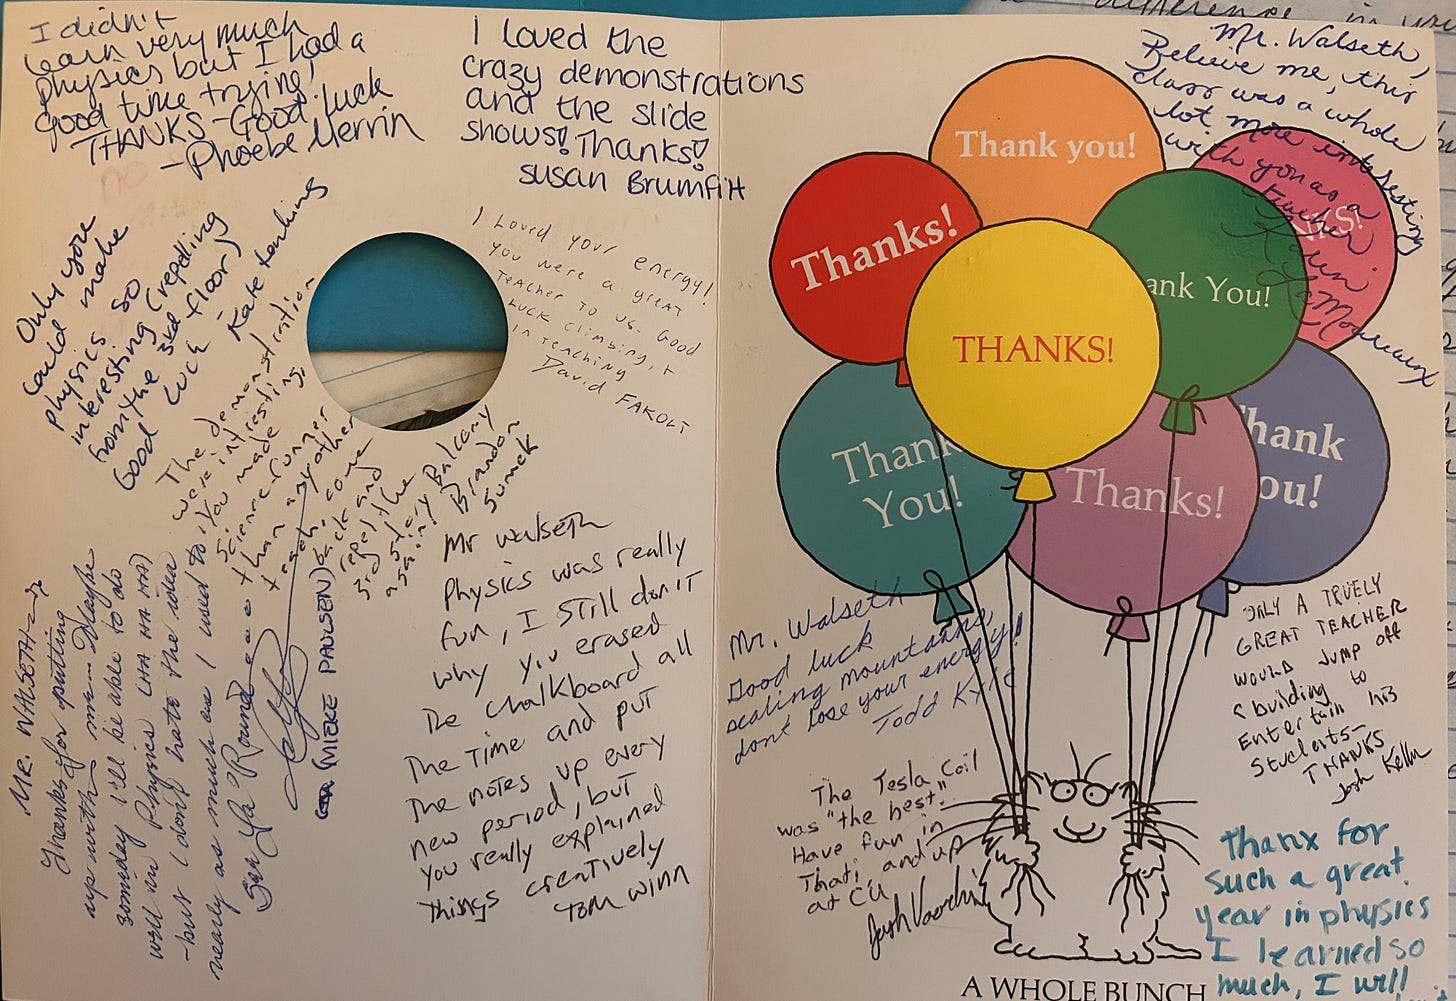 I didn't
learn very much
physics but I had a
good time trying!
THANKS - Good luck
- Phoebe Merrin
I loved the
crazy demonstrations
and the slide
shows! Thanks!
Susan Brumfitt
Only you
could make
physics so
interesting (repelling
from the 3rd floor)
Good luck
Kate
I Loved your
energy!
You were a great
Teacher to us. Good
Luck climbing, +
in teaching
David FAKOLT
The demonstration
were interesting,
You made
science funner
than any other
teach, come
back and
repel the
3rd story Balcony
again! Brandon
Sumek
(MIEKE PAUSEN)
Mr. WALSETH
Thanks for putting
up with me. Maybe
someday I'll be able to do
well in Physics (HA HA HA)
- but I don't hate the idea
nearly as much as I used to!
See Ya 'Round
Mr Walseth
Physics was really
fun, I still don't
why you erased
The chalkboard all
The Time and put
The notes up every
new period, but
you really explained
things creatively
Tom Winn
Mr. Walseth,
Believe me, this
class was a whole
lot more interesting
with you as a
teacher.
Thank you!
Thanks!
NKS!
ank You!
THANKS!
Thank
You!
Thanks!
hank
ou!
Mr. Walseth
Good luck
scaling mountains,
dont lose your energy!
Todd
The Tesla Coil
was "the best".
Have fun in
That, and up
at CU
Josh
ONLY A TRUELY
GREAT TEACHER
WOULD JUMP off
a building to
Entertain his
Students-
THANKS
Josh Kelln
Thanx for
such a great
year in physics
I learned so
much, I will
A WHOLE BUNCH